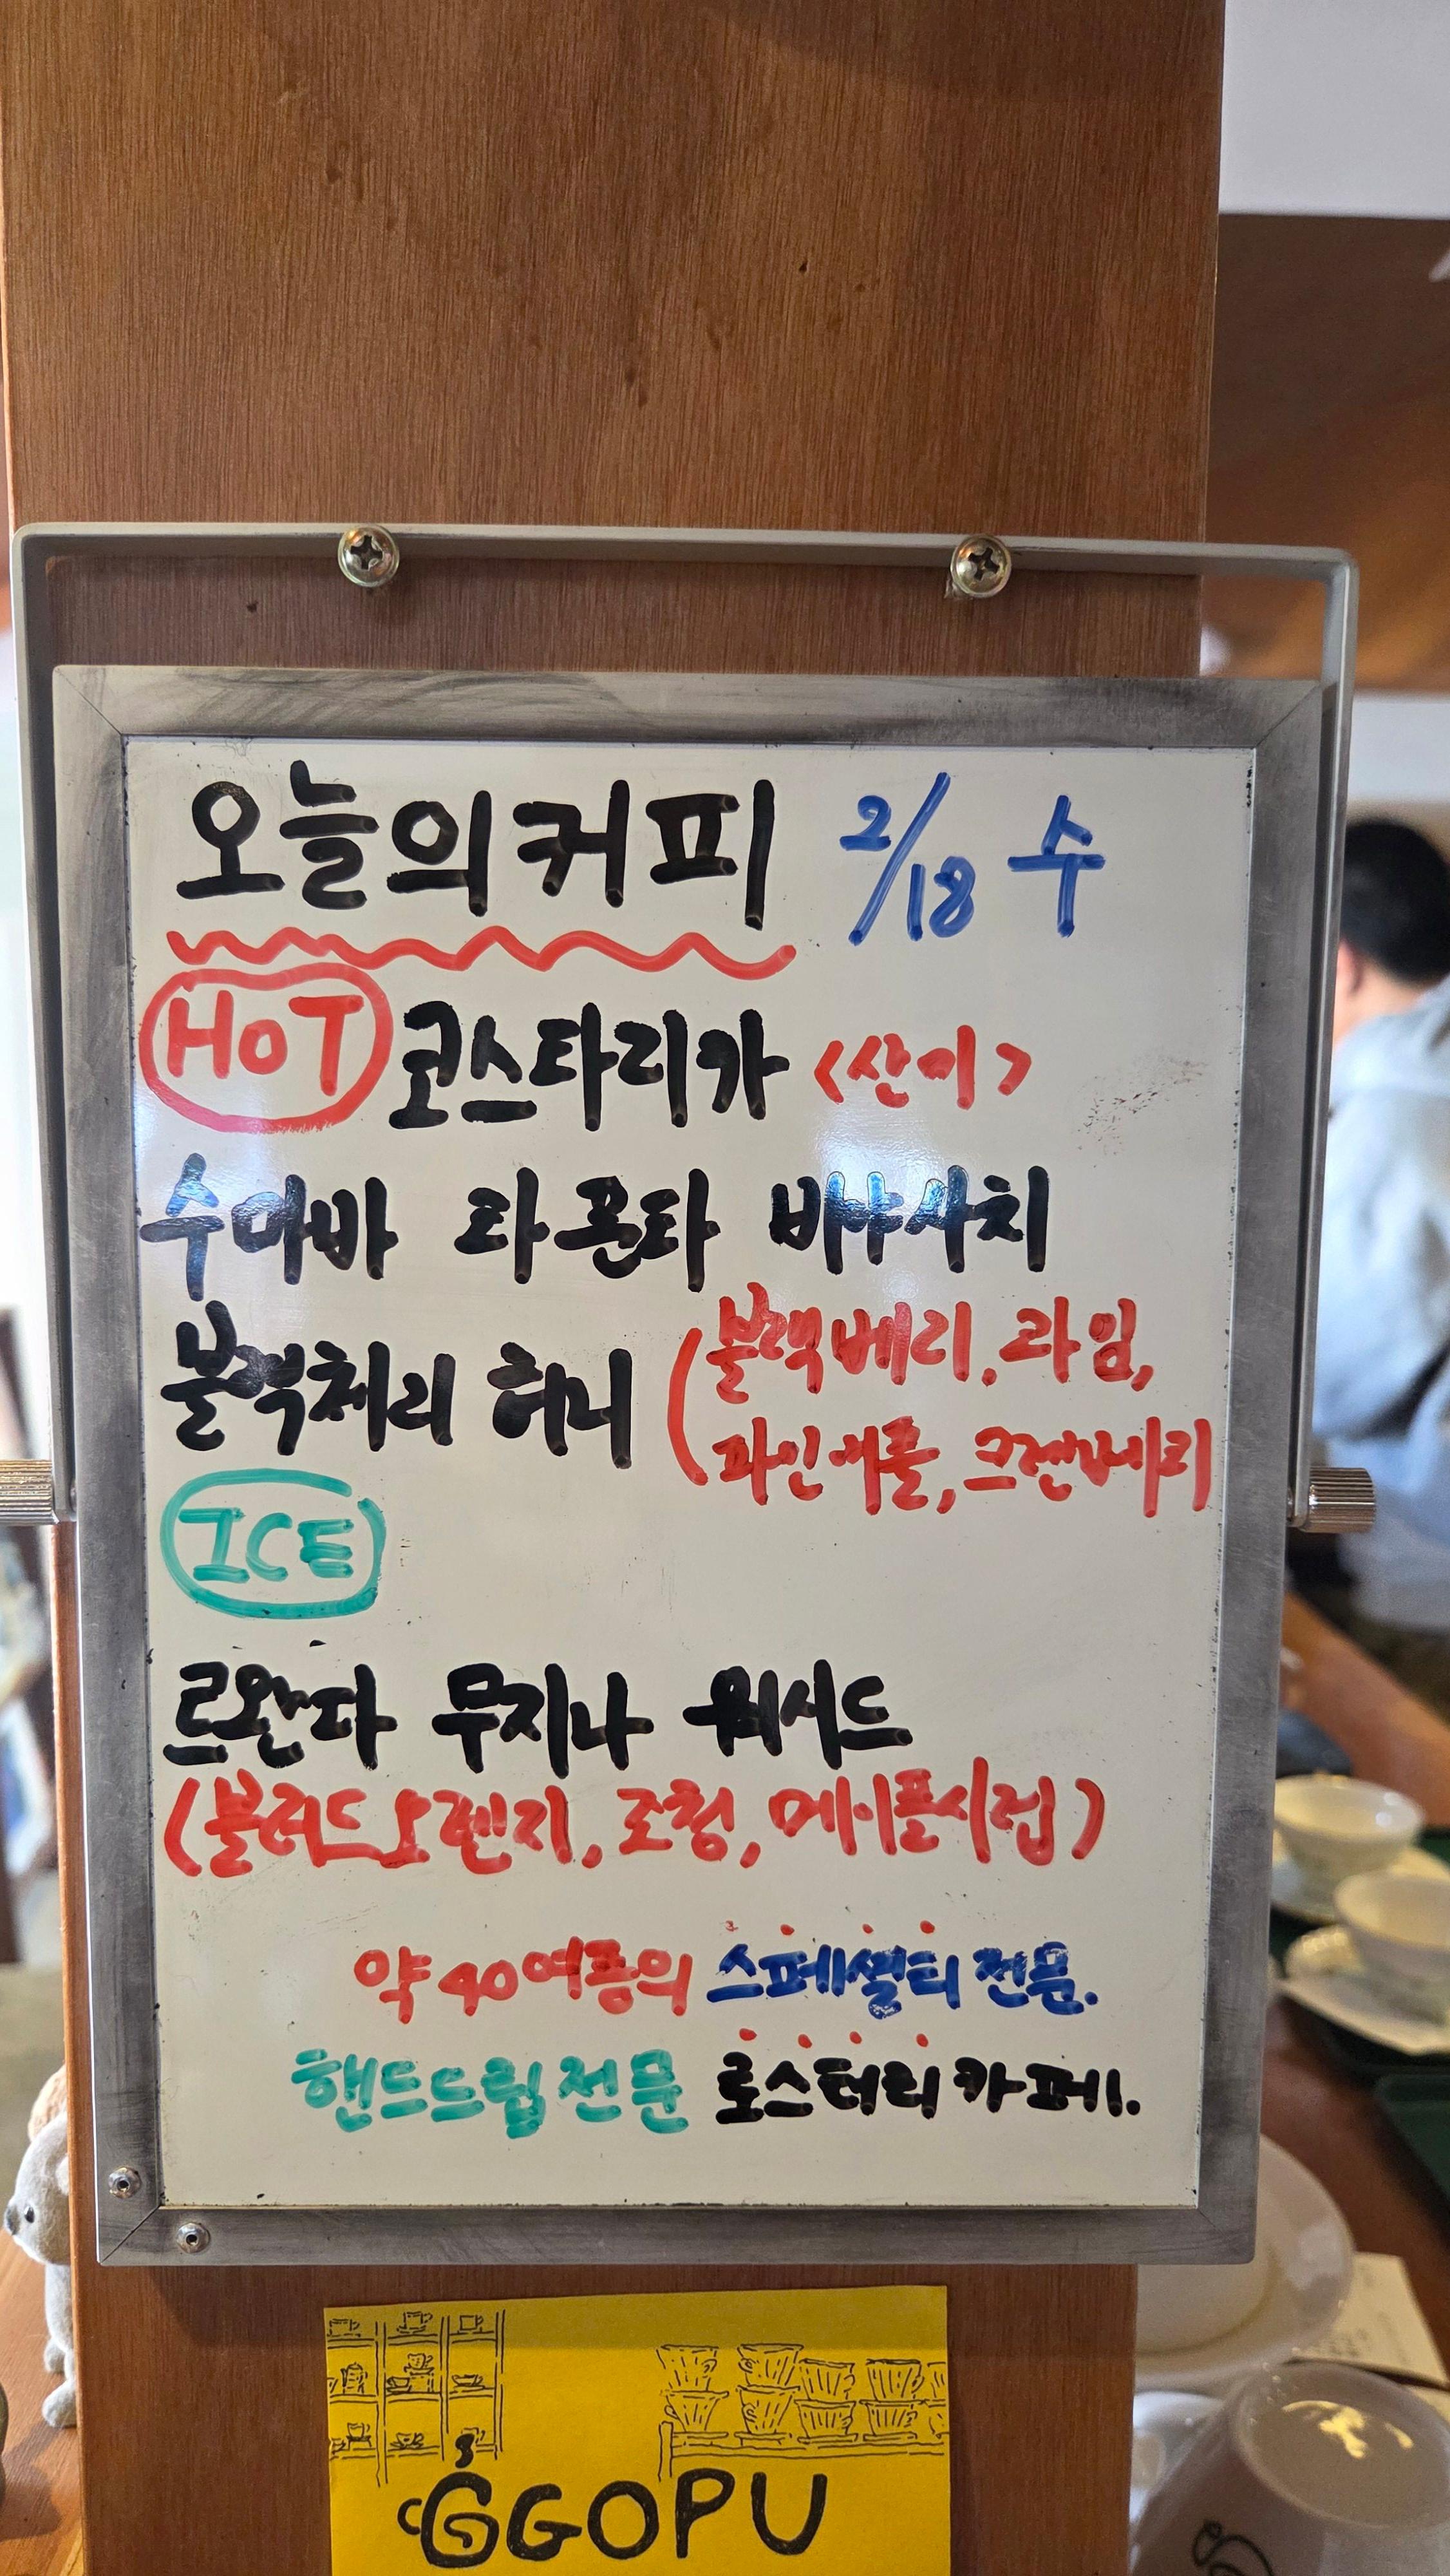 오늘의커피 2/18 수
HOT 코스타리카 <산미>
수마바 타론타 비야사치
블랙체리 허니 (블랙베리, 라임,
파인애플, 크랜베리
ICE
르완다 무지나 워시드
(블러드오렌지, 조청, 메이플시럽)
약40여종의 스페셜티전문.
핸드드립전문 로스터리카페.
GGOPU